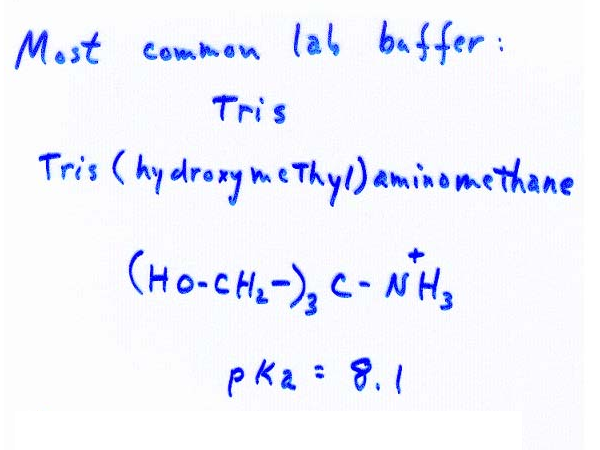 Most common lab buffer:
Tris
Tris (hydroxymeThyl) aminomethane
(HO-CH₂-)₃ C - N⁺H₃
pKa = 8.1